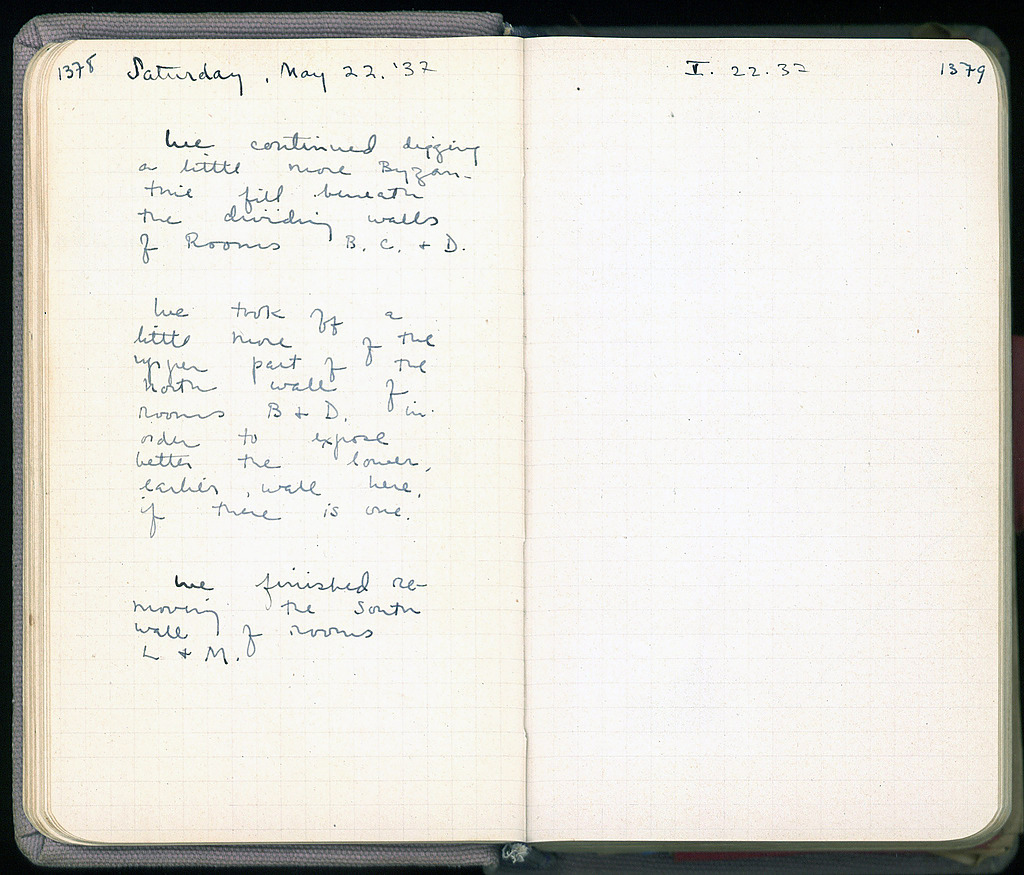 1378 Saturday, May 22. '37
We continued digging
a little more Byzan-
tine fill beneath
the dividing walls
of Rooms B. C. + D.
We took off a
little more of the
upper part of the
North wall of
rooms B + D. in
order to expose
better the lower,
earlier, wall here,
if there is one.
We finished re-
moving the South
wall of rooms
L + M.
V. 22.37 1379